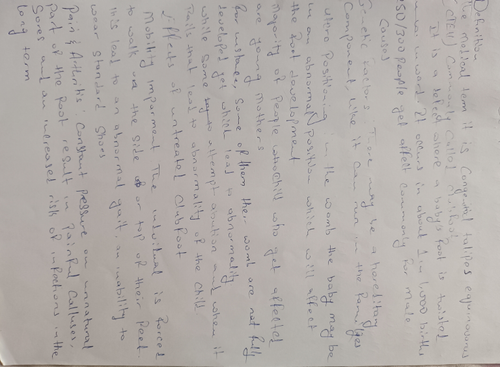 Definition
The medical term it is Congenital talipes equinovarus
(CTEV) Commonly Called
It is a defect where a baby's foot is twisted
inward. It occurs in about 1 in 1,000 births
people get affect commonly for male
Causes
Genetic factors There may be a hereditary
Component, like it can run in the families
utero Positioning in the womb the baby may be
in an abnormal Position which will affect
the foot development
Majority of people who get affected
are young mothers
for instance, Some of them their womb are not fully
developed yet which lead to abnormality
while some attempt abortion and when it
fails that lead to abnormality of the Child
Effects of untreated Clubfoot
Mobility Impairment The individual is forced
to walk on the side or top of their feet.
this lead to an abnormal gait an inability to
wear standard Shoes
Pain & Arthritis Constant pressure on unnatural
Part of the foot result in Painful Calluses,
Sores and an increased risk of infections in the
long term